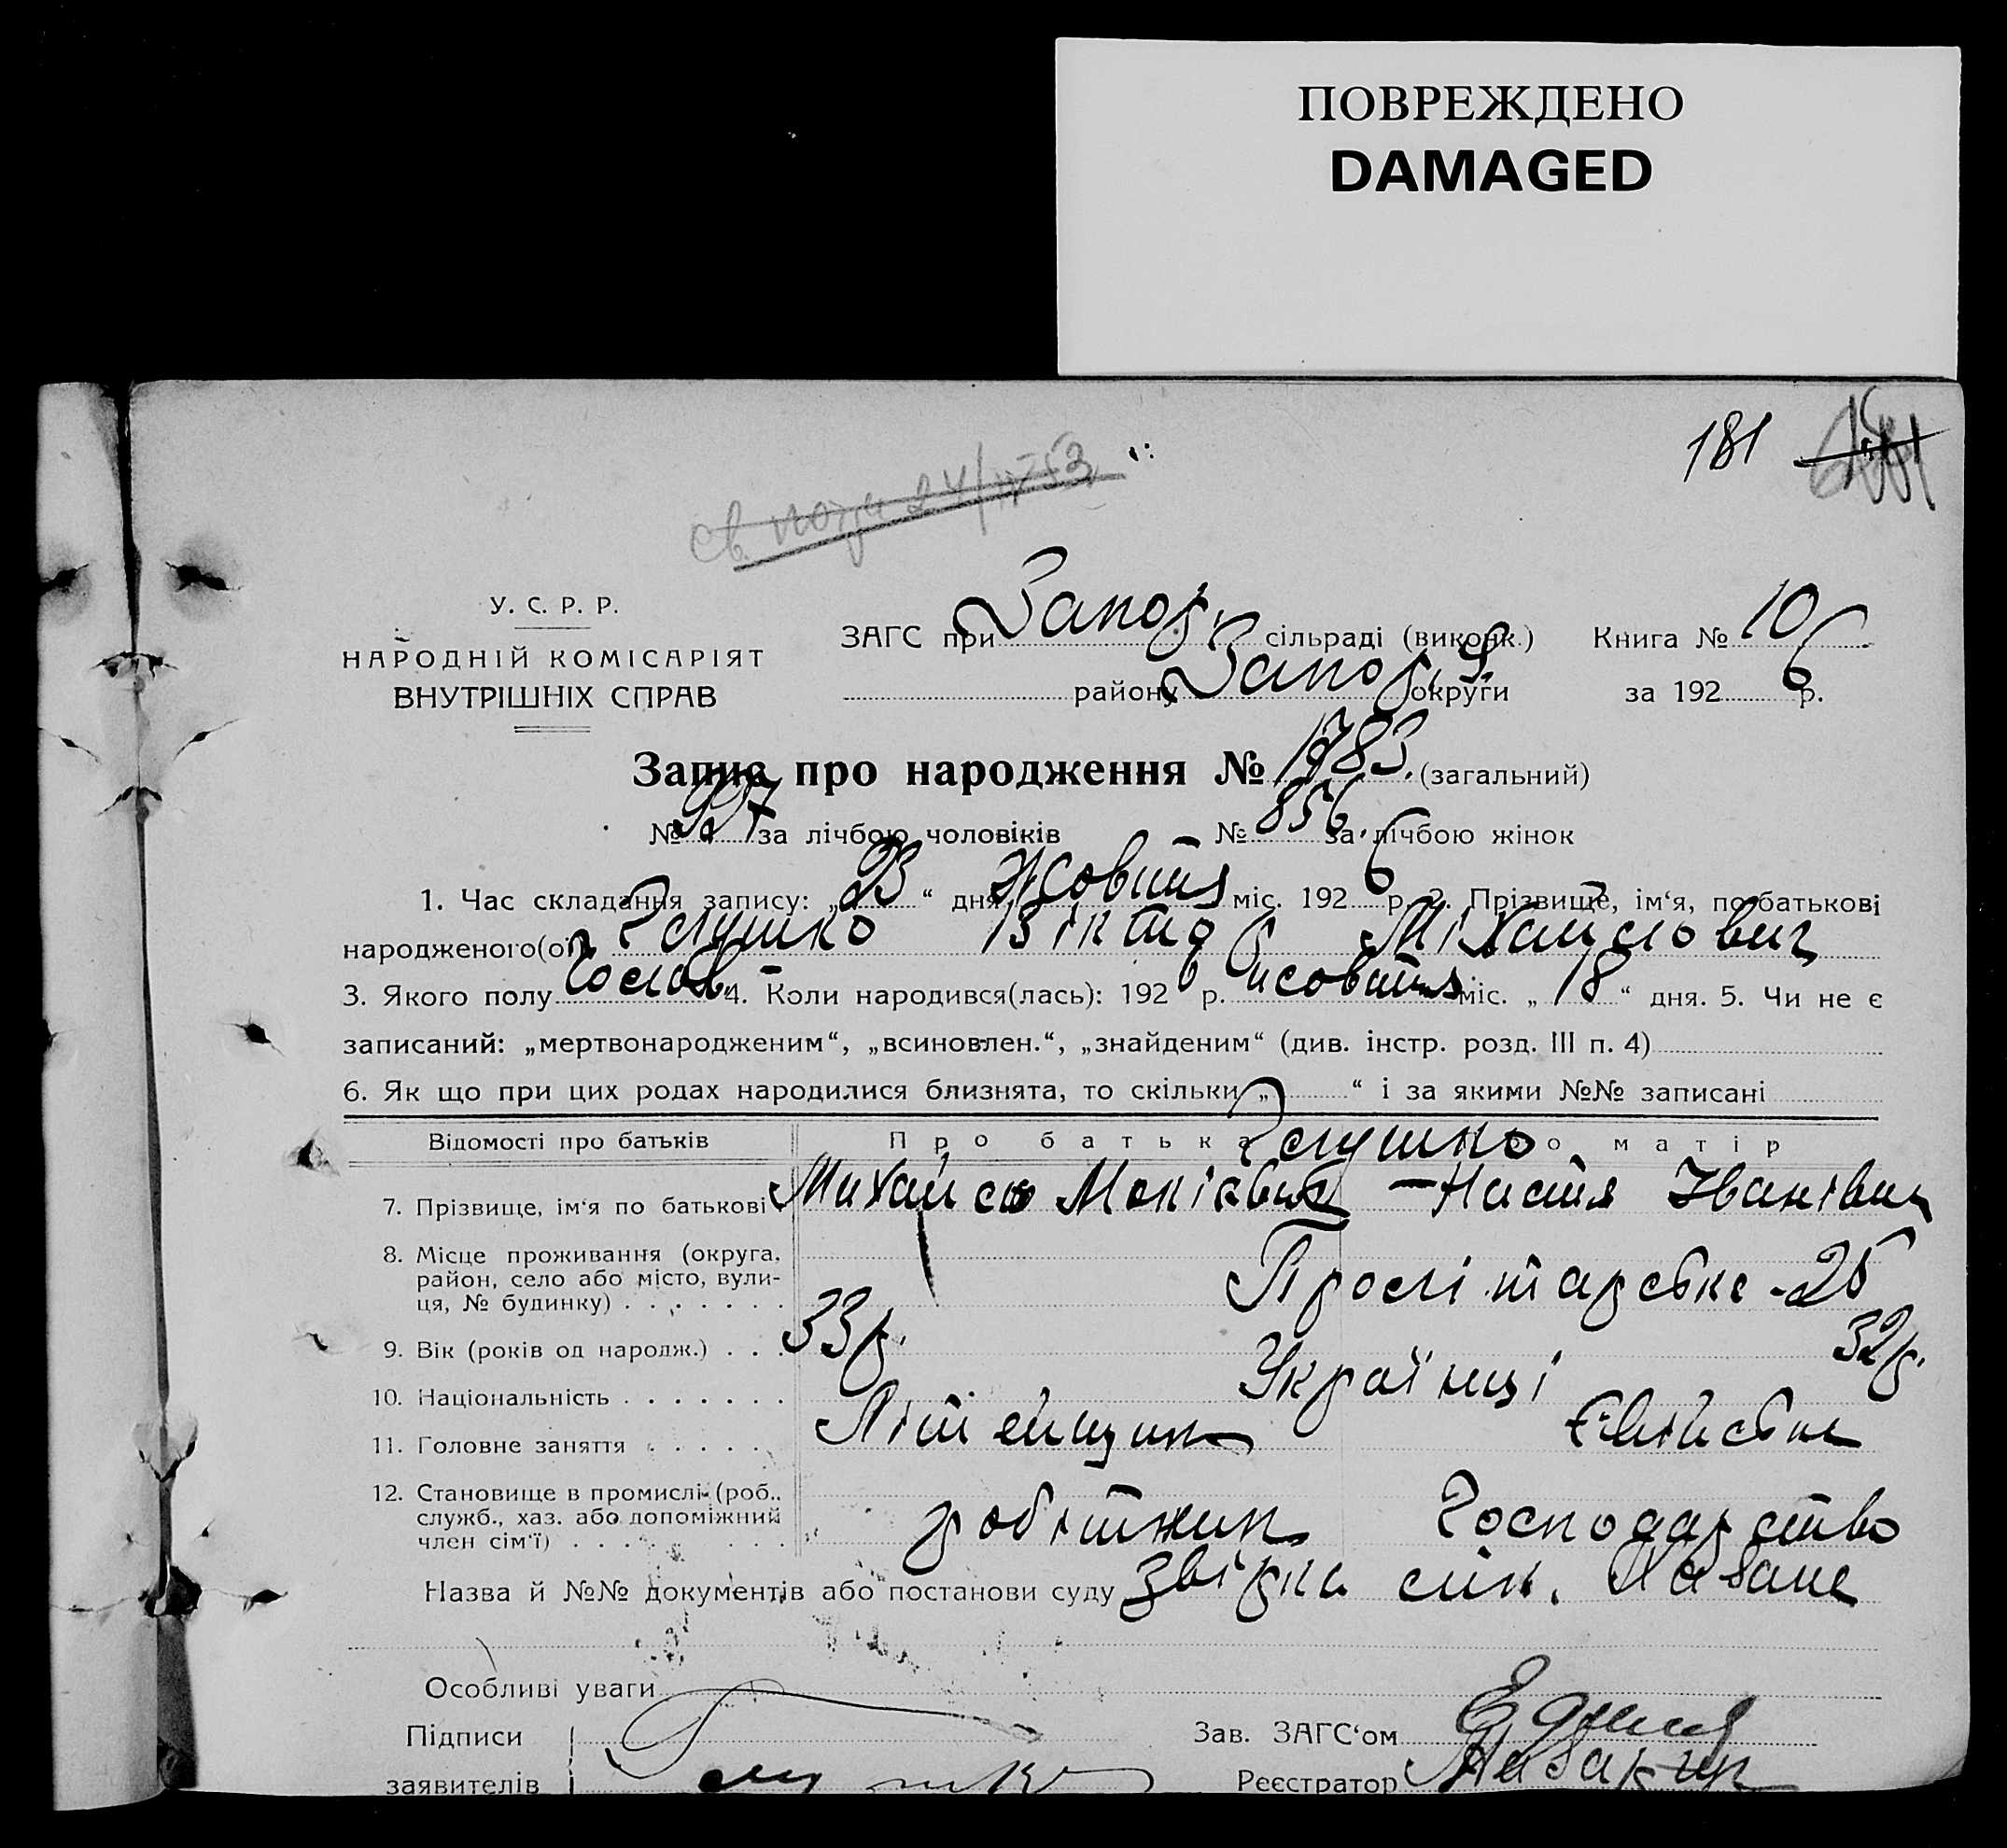 ПОВРЕЖДЕНО
DAMAGED
181
У. С. Р. Р.
НАРОДНІЙ КОМІСАРІЯТ
ВНУТРІШНІХ СПРАВ
ЗАГС при Запор. сільраді (виконк.) Книга № 10
району Запор. округи за 1926 р.
Запис про народження № 1783. (загальний)
№ за лічбою чоловіків № 856 за лічбою жінок
1. Час складання запису: „23“ дня Жовтня міс. 1926 р. 2. Прізвище, ім‘я, по батькові
народженого(ої) Глушко Віктор Міхайлович
3. Якого полу Чолов. 4. Коли народився(лась): 1926 р. жовтня міс. „18“ дня. 5. Чи не є
записаний: „мертвонародженим“, „всиновлен.“, „знайденим“ (див. інстр. розд. III п. 4)
6. Як що при цих родах народилися близнята, то скільки „ “ і за якими №№ записані
Відомості про батьків Про батька Про матір
Глушко
7. Прізвище, ім‘я по батькові Михайло Мокієвич – Настя Іванівна
8. Місце проживання (округа, район, село або місто, вули-
ця, № будинку) Пролітарська - 25
9. Вік (років од народж.) 33 р. 32 р.
10. Національність Українці
11. Головне заняття Літейщик
12. Становище в промислі (роб., служб., хаз. або допоміжний
член сім‘ї) робітник Господарство
Назва й №№ документів або постанови суду
Особливі уваги
Підписи
заявителів Глушко
Зав. ЗАГС‘ом
Реєстратор